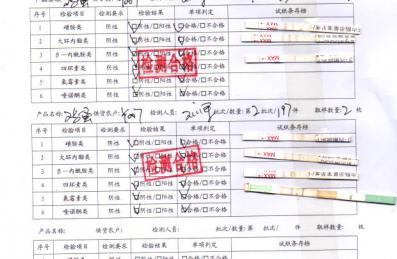 序号 检验项目 检测要求 检验结果 单项判定 试纸条存档
1 磺胺类 阴性 ☑阴性/□阳性 ☑合格/□不合格
2 大环内酯类 阴性 ☑阴性/□阳性 ☑合格/□不合格
3 β—内酰胺类 阴性 ☑阴性/□阳性 ☑合格/□不合格
4 四环素类 阴性 阴性/□阳性 合格/□不合格
5 氨霉素类 阴性 阴性/□阳性 合格/□不合格
6 喹诺酮类 阴性 阴性/□阳性 合格/□不合格
检测合格
MAX
MAX
产品名称: 鸡蛋 供货农户: 检测人员: 批次/数量:第 2 批次/ 197 件 取样数量: 2 枚
序号 检验项目 检测要求 检验结果 单项判定 试纸条存档
1 磺胺类 阴性 ☑阴性/□阳性 ☑合格/□不合格
2 大环内酯类 阴性 ☑阴性/□阳性 ☑合格/□不合格
3 β—内酰胺类 阴性 阴性/□阳性 ☑合格/□不合格
4 四环素类 阴性 阴性/□阳性 合格/□不合格
5 阴性 阴性/□阳性 合格/□不合格
6 喹诺酮类 阴性 阴性/□阳性 合格/□不合格
检测合格
MAX
MAX
产品名称: 供货农户: 检测人员: 批次/数量:第 批次/ 件 取样数量: 枚
序号 检验项目 检测要求 检验结果 单项判定 试纸条存档